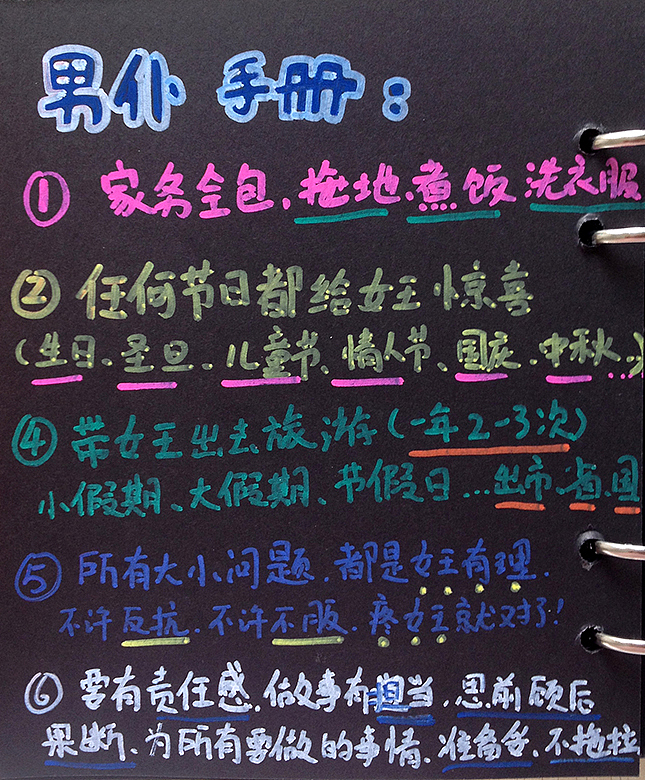 男仆 手册：
① 家务全包、拖地、煮饭 洗衣服
② 任何节日都给女王惊喜
(生日、圣旦、儿童节、情人节、国庆、中秋...)
④ 带女王出去旅游(一年2-3次)
小假期、大假期、节假日...出市.省.国
⑤ 所有大小问题.都是女王有理.
不许反抗.不许不服.疼女王就对了!
⑥ 要有责任感.做事有担当.思前顾后
果断、为所有要做的事情.准备妥.不拖拉